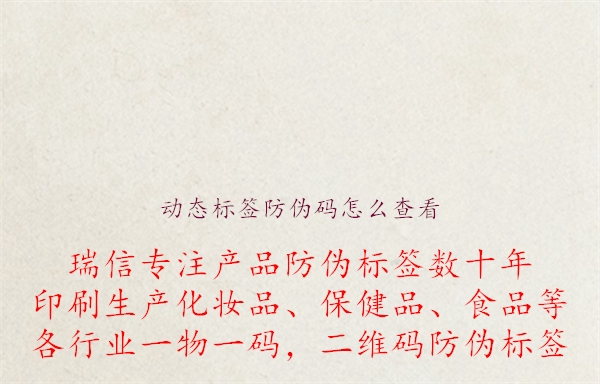 动态标签防伪码怎么查看
瑞信专注产品防伪标签数十年
印刷生产化妆品、保健品、食品等
各行业一物一码，二维码防伪标签